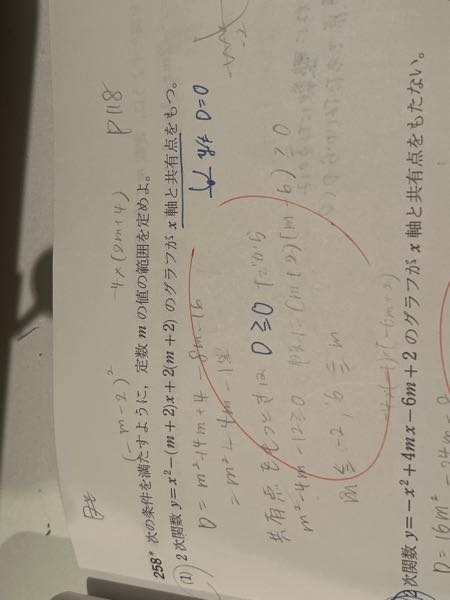 P118
(-m-2)² -4×(2m+4)
258* 次の条件を満たすように，定数 m の値の範囲を定めよ。
(1) 2次関数 y=x²-(m+2)x+2(m+2) のグラフが x 軸と共有点をもつ。
D=0
D = m²+4m+4-8m-16
= m²-4m-12
共有点をもつときは D≧0 だから
m²-4m-12≧0 (m+2)(m-6)≧0
m≦-2, 6≦m
2次関数 y=-x²+4mx-6m+2 のグラフが x 軸と共有点をもたない。
D=16m²-24m